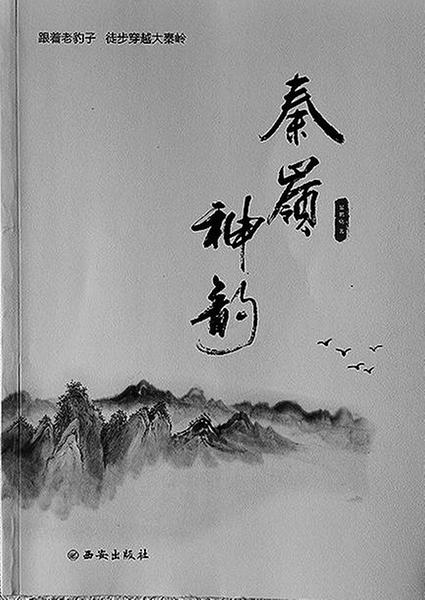 跟着老豹子 徒步穿越大秦岭
秦嶺
神韵
西安出版社